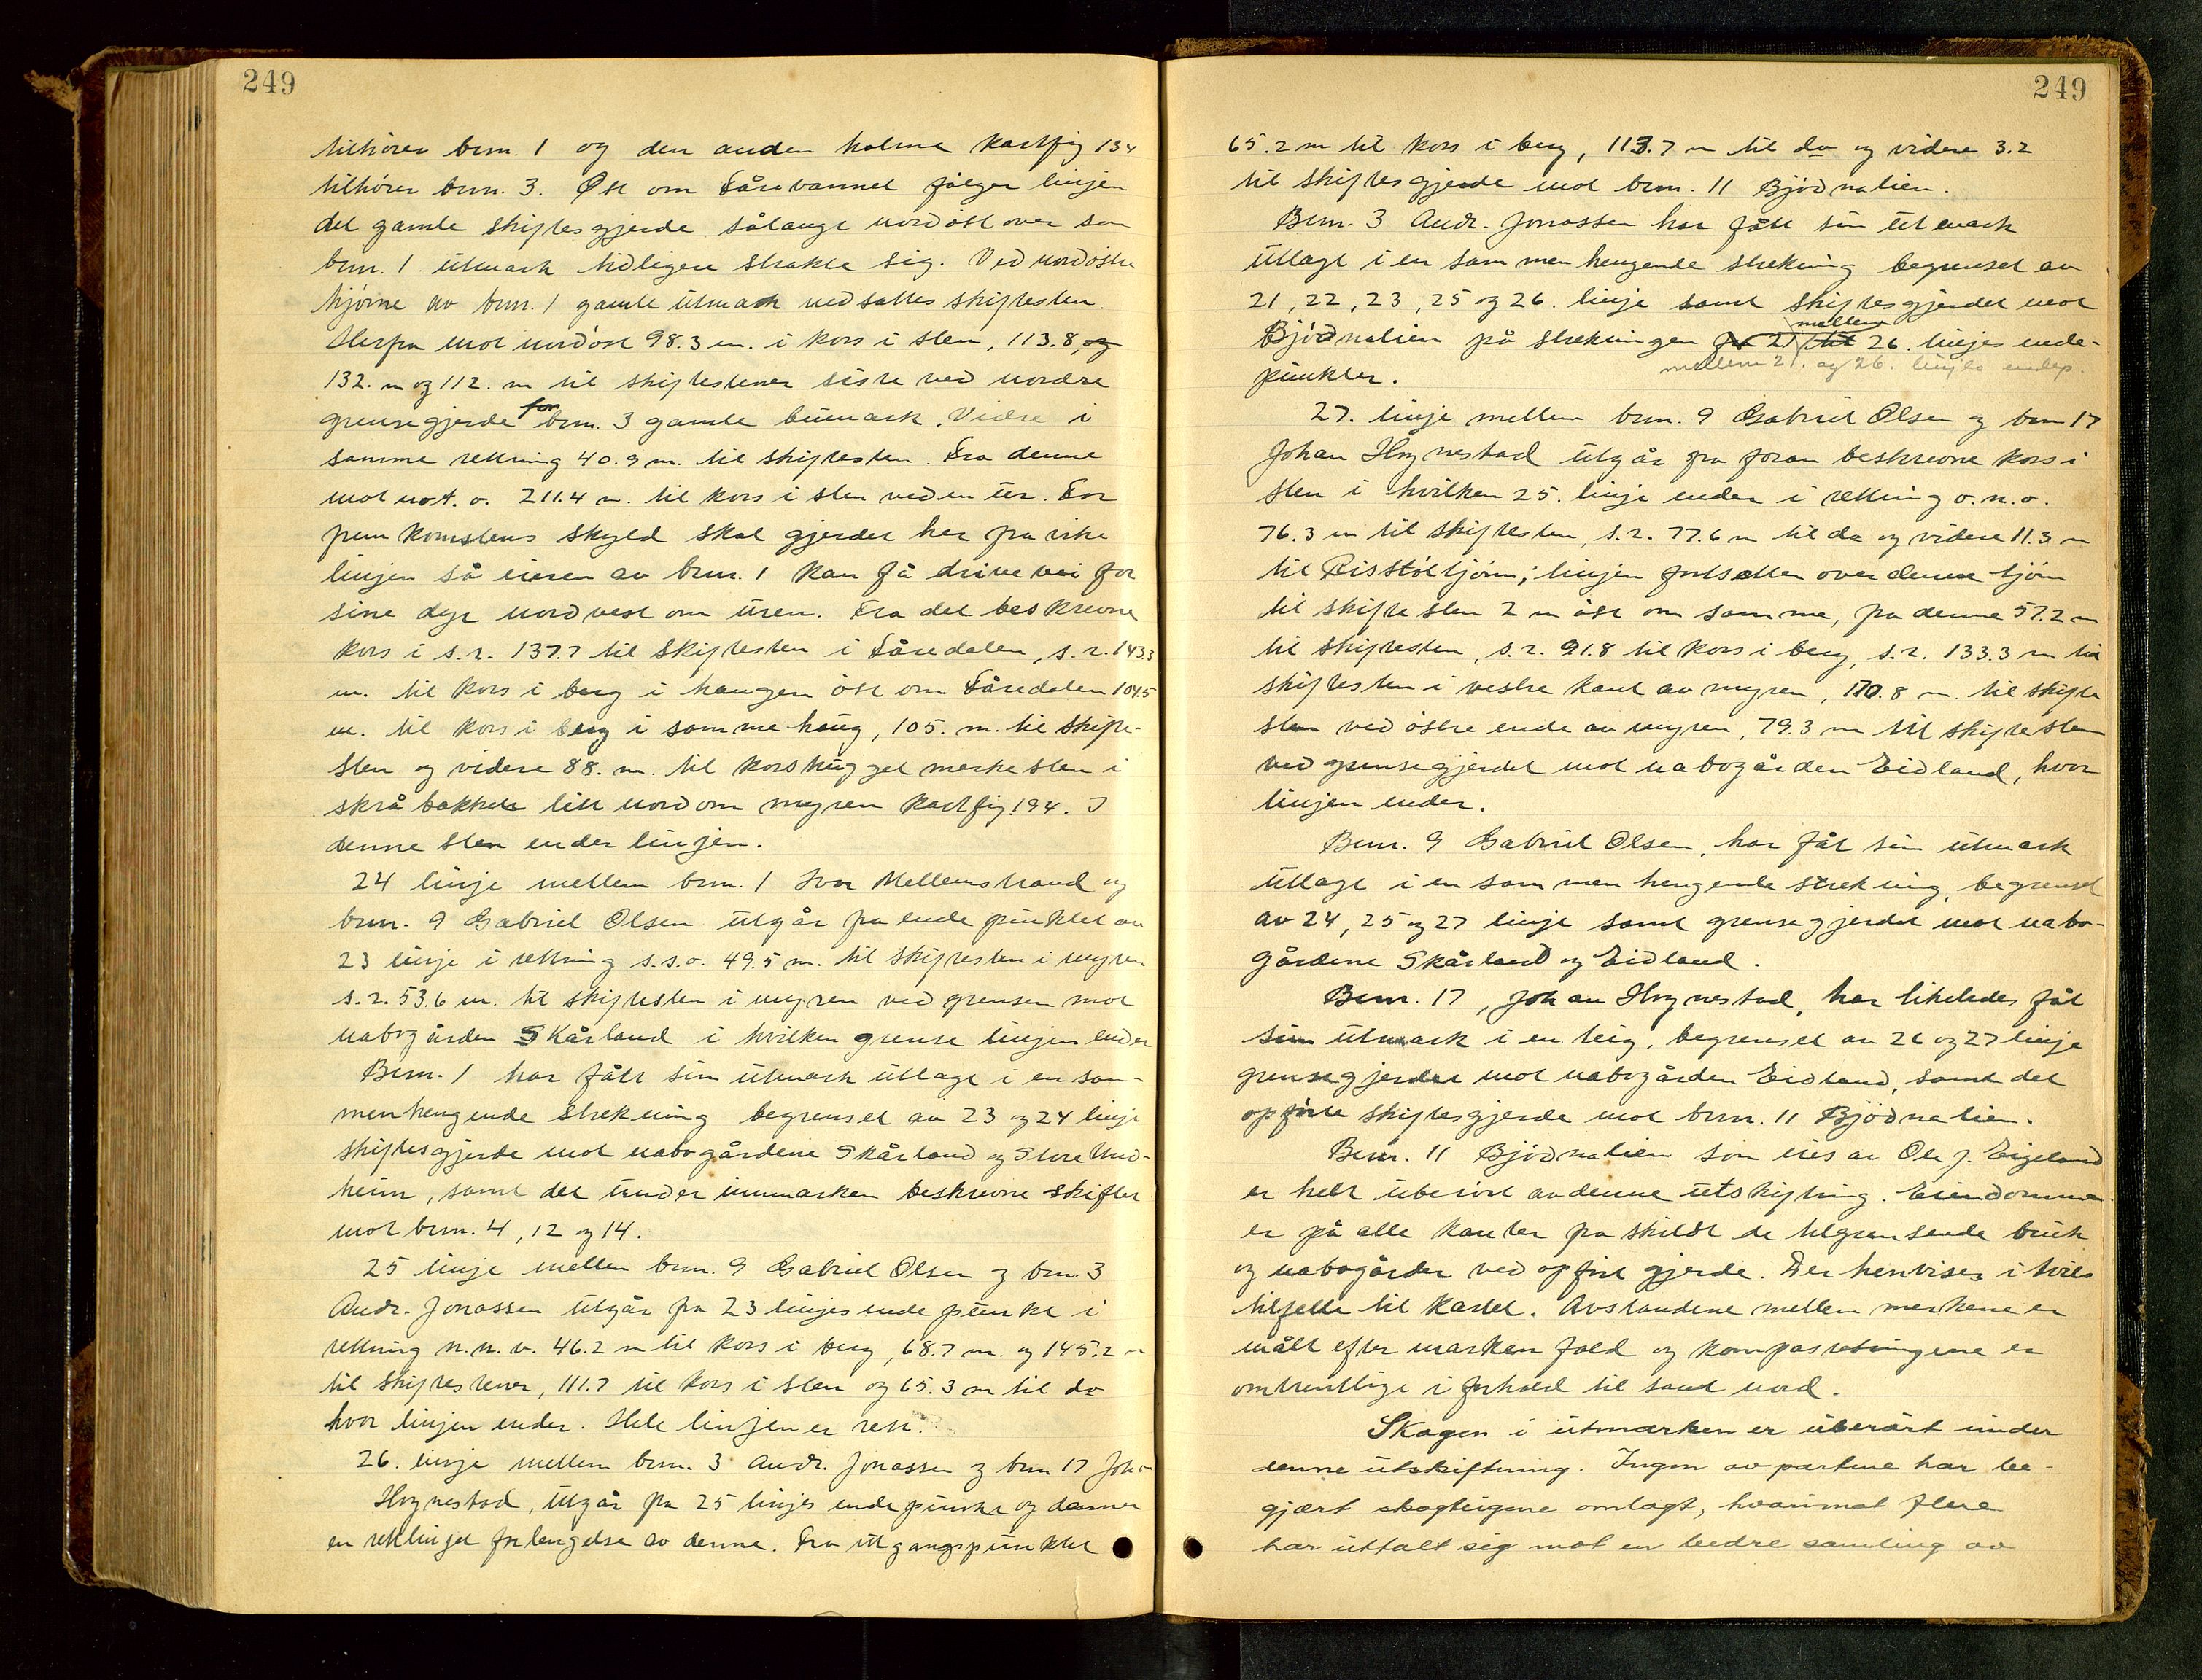 249
tilhörer brm. 1 og den anden holme kartfig 134
tilhörer brm. 3. Øst om Låsevannet følger linjen
det gamle skiftesgjerde sålange nordöst over som
brm. 1 utmark tidligere strakte sig. Ved nordöstre
hjörne av brm. 1 gamle utmark nedsattes skiftesten.
Herfra mot nordöst 98.3 m. i kors i sten, 113.8, og
132. m og 112. m til skiftestener siste ved nordre
grensegjerde for brm. 3 gamle bumark. Videre i
samme retning 40.9 m. til skiftesten. Fra denne
mot no t. o. 211.4 m. til kors i sten ved en ur. For
frem komstens skyld skal gjerdet her fra vike
linjen så eieren av brm. 1 kan få drive vei for
sine dyr nordvest om uren. Fra det beskrevne
kors i s.r. 137.7 til skiftesten i Låsedalen, s.r. 143.3
m. til kors i berg i haugen öst om Låsedalen 104.5
m. til kors i berg i samme haug, 105. m. til skifte-
sten og videre 88. m. til korshugget merkesten i
skrå bakken litt nord om myren kartfig. 194. I
denne sten ender linjen.
24 linje mellem brm. 1 Ivar Mellemstrand og
brm. 9 Gabriel Olsen utgår fra ende punktet av
23 linje i retning s.s.o. 49.5 m. til skiftesten i myren
s.r. 53.6 m. til skiftesten i myren ved grensen mot
nabogården Skårland i hvilken grense linjen ender
Brm. 1 har fått sin utmark utlagt i en sam-
menhengende strekning begrenset av 23 og 24 linje
skiftesgjerde mot nabogårdene Skårland og Store Und-
heim, samt det under innmarken beskrevne skifter
mot brm. 4, 12 og 14.
25 linje mellem brm. 9 Gabriel Olsen og brm. 3
Andr. Jonassen utgår fra 23 linjes ende punkt i
retning n.n.v. 46.2 m til kors i berg, 68.7 m. og 145.2 m
til skiftestener, 111.7 til kors i sten og 65.3 m til do
hvor linjen ender. Hele linjen er rett.
26. linje mellem brm. 3 Andr. Jonassen og brm 17 Joh.
Hognestad, utgår fra 25 linjes endepunkt og danner
en rettlinjet forlengelse av denne. Fra utgangspunktet
249
65.2 m til kors i berg, 113.7 m til do og videre 3.2
til skiftesgjerde mot brm. 11 Bjödnalien.
Brm. 3 Andr. Jonassen har fått sin utmark
utlagt i en sammenhengende strekning begrenset av
21, 22, 23, 25 og 26. linje samt skiftesgjerdet mot
mellem
Bjödnalien på strekningen fra 21 til 26. linjes ende-
mellem 21. og 26. linjes endep.
punkter.
27. linje mellem brm. 9 Gabriel Olsen og brm 17
Johan Hognestad utgår fra foran beskrevne kors i
sten i hvilken 25. linje ender i retning o.n.o.
76.3 m til skiftesten, s.r. 77.6 m til do og videre 11.3 m
til Risstöltjörn; linjen fortsetter over denne tjörn
til skifte sten 2 m öst om samme, fra denne 57.2 m
til skiftesten, s.r. 91.8 til kors i berg, s.r. 133.3 m til
skiftesten i vestre kant av myren, 170.8 m. til skifte
sten ved östre ende av myren, 79.3 m til skiftesten
ved grensegjerdet mot nabogården Eidland, hvor
linjen ender.
Brm. 9 Gabriel Olsen, har fåt sin utmark
utlagt i en sammenhengende strekning, begrenset
av 24, 25 og 27 linje samt grensegjerdet mot nabo-
gårdene Skårland og Eidland.
Brm. 17, Johan Hognestad, har likeledes fåt
sin utmark i en teig, begrenset av 26 og 27 linje
grensegjerdet mot nabogården Eidland, samt det
opførte skiftesgjerde mot brm. 11 Bjödnalien.
Brm. 11 Bjödnalien som eies av Ole J. Eigeland
er helt uberört av denne utskiftning. Eiendommen
er på alle kanter fra skildt de tilgrensende bruk
og nabogårder ved opført gjerde. Der henvises i hvis
tilfelle til kartet. Avstandene mellem merkene er
målt efter marken fald og kompasretningene er
omtrentlige i forhold til sand nord.
Skogen i utmarken er uberørt under
denne utskiftning. Ingen av partene har be-
gjært skogteigene omlagt, hvorimot flere
har uttalt sig mot en bedre samling av